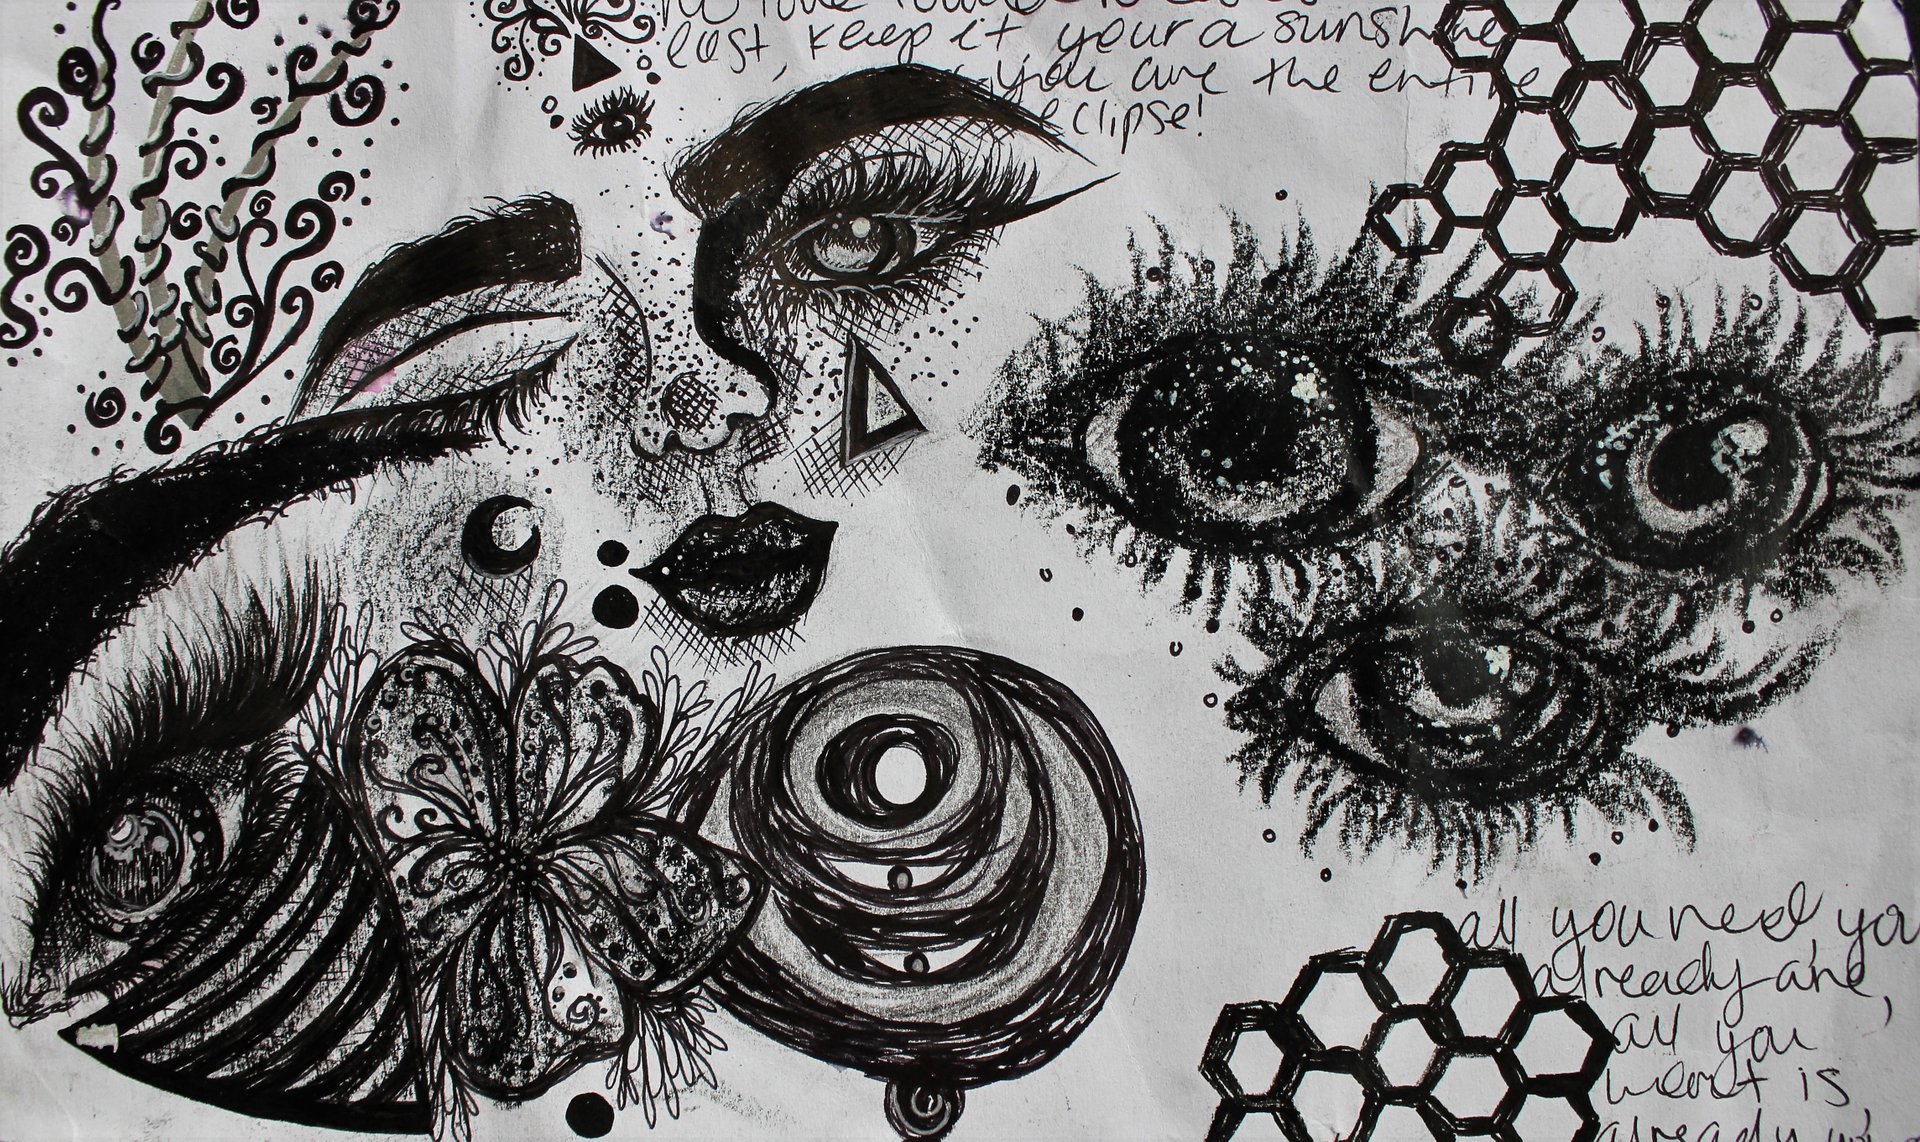 last, keep it, your a sunshine
you are the entire
eclipse!
all you need you
already are,
all you
want is
already